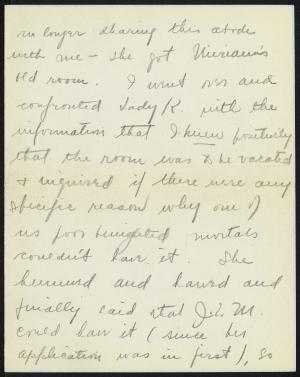 no longer sharing this abode
with me - she got Miriam's
old room. I went over and
confronted Lady K. with the
information that I knew positively
that the room was to be vacated
& inquired if there were any
specific reason why one of
us poor benighted mortals
couldn't have it. She
hemmed and hawed and
finally said that M.
could have it (since her
application was in first), so